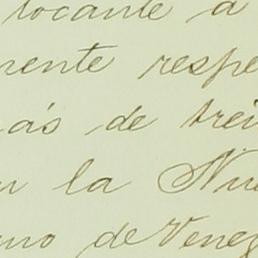 tocante a
mente respe
más de trei
en la Nu
ano de Venez